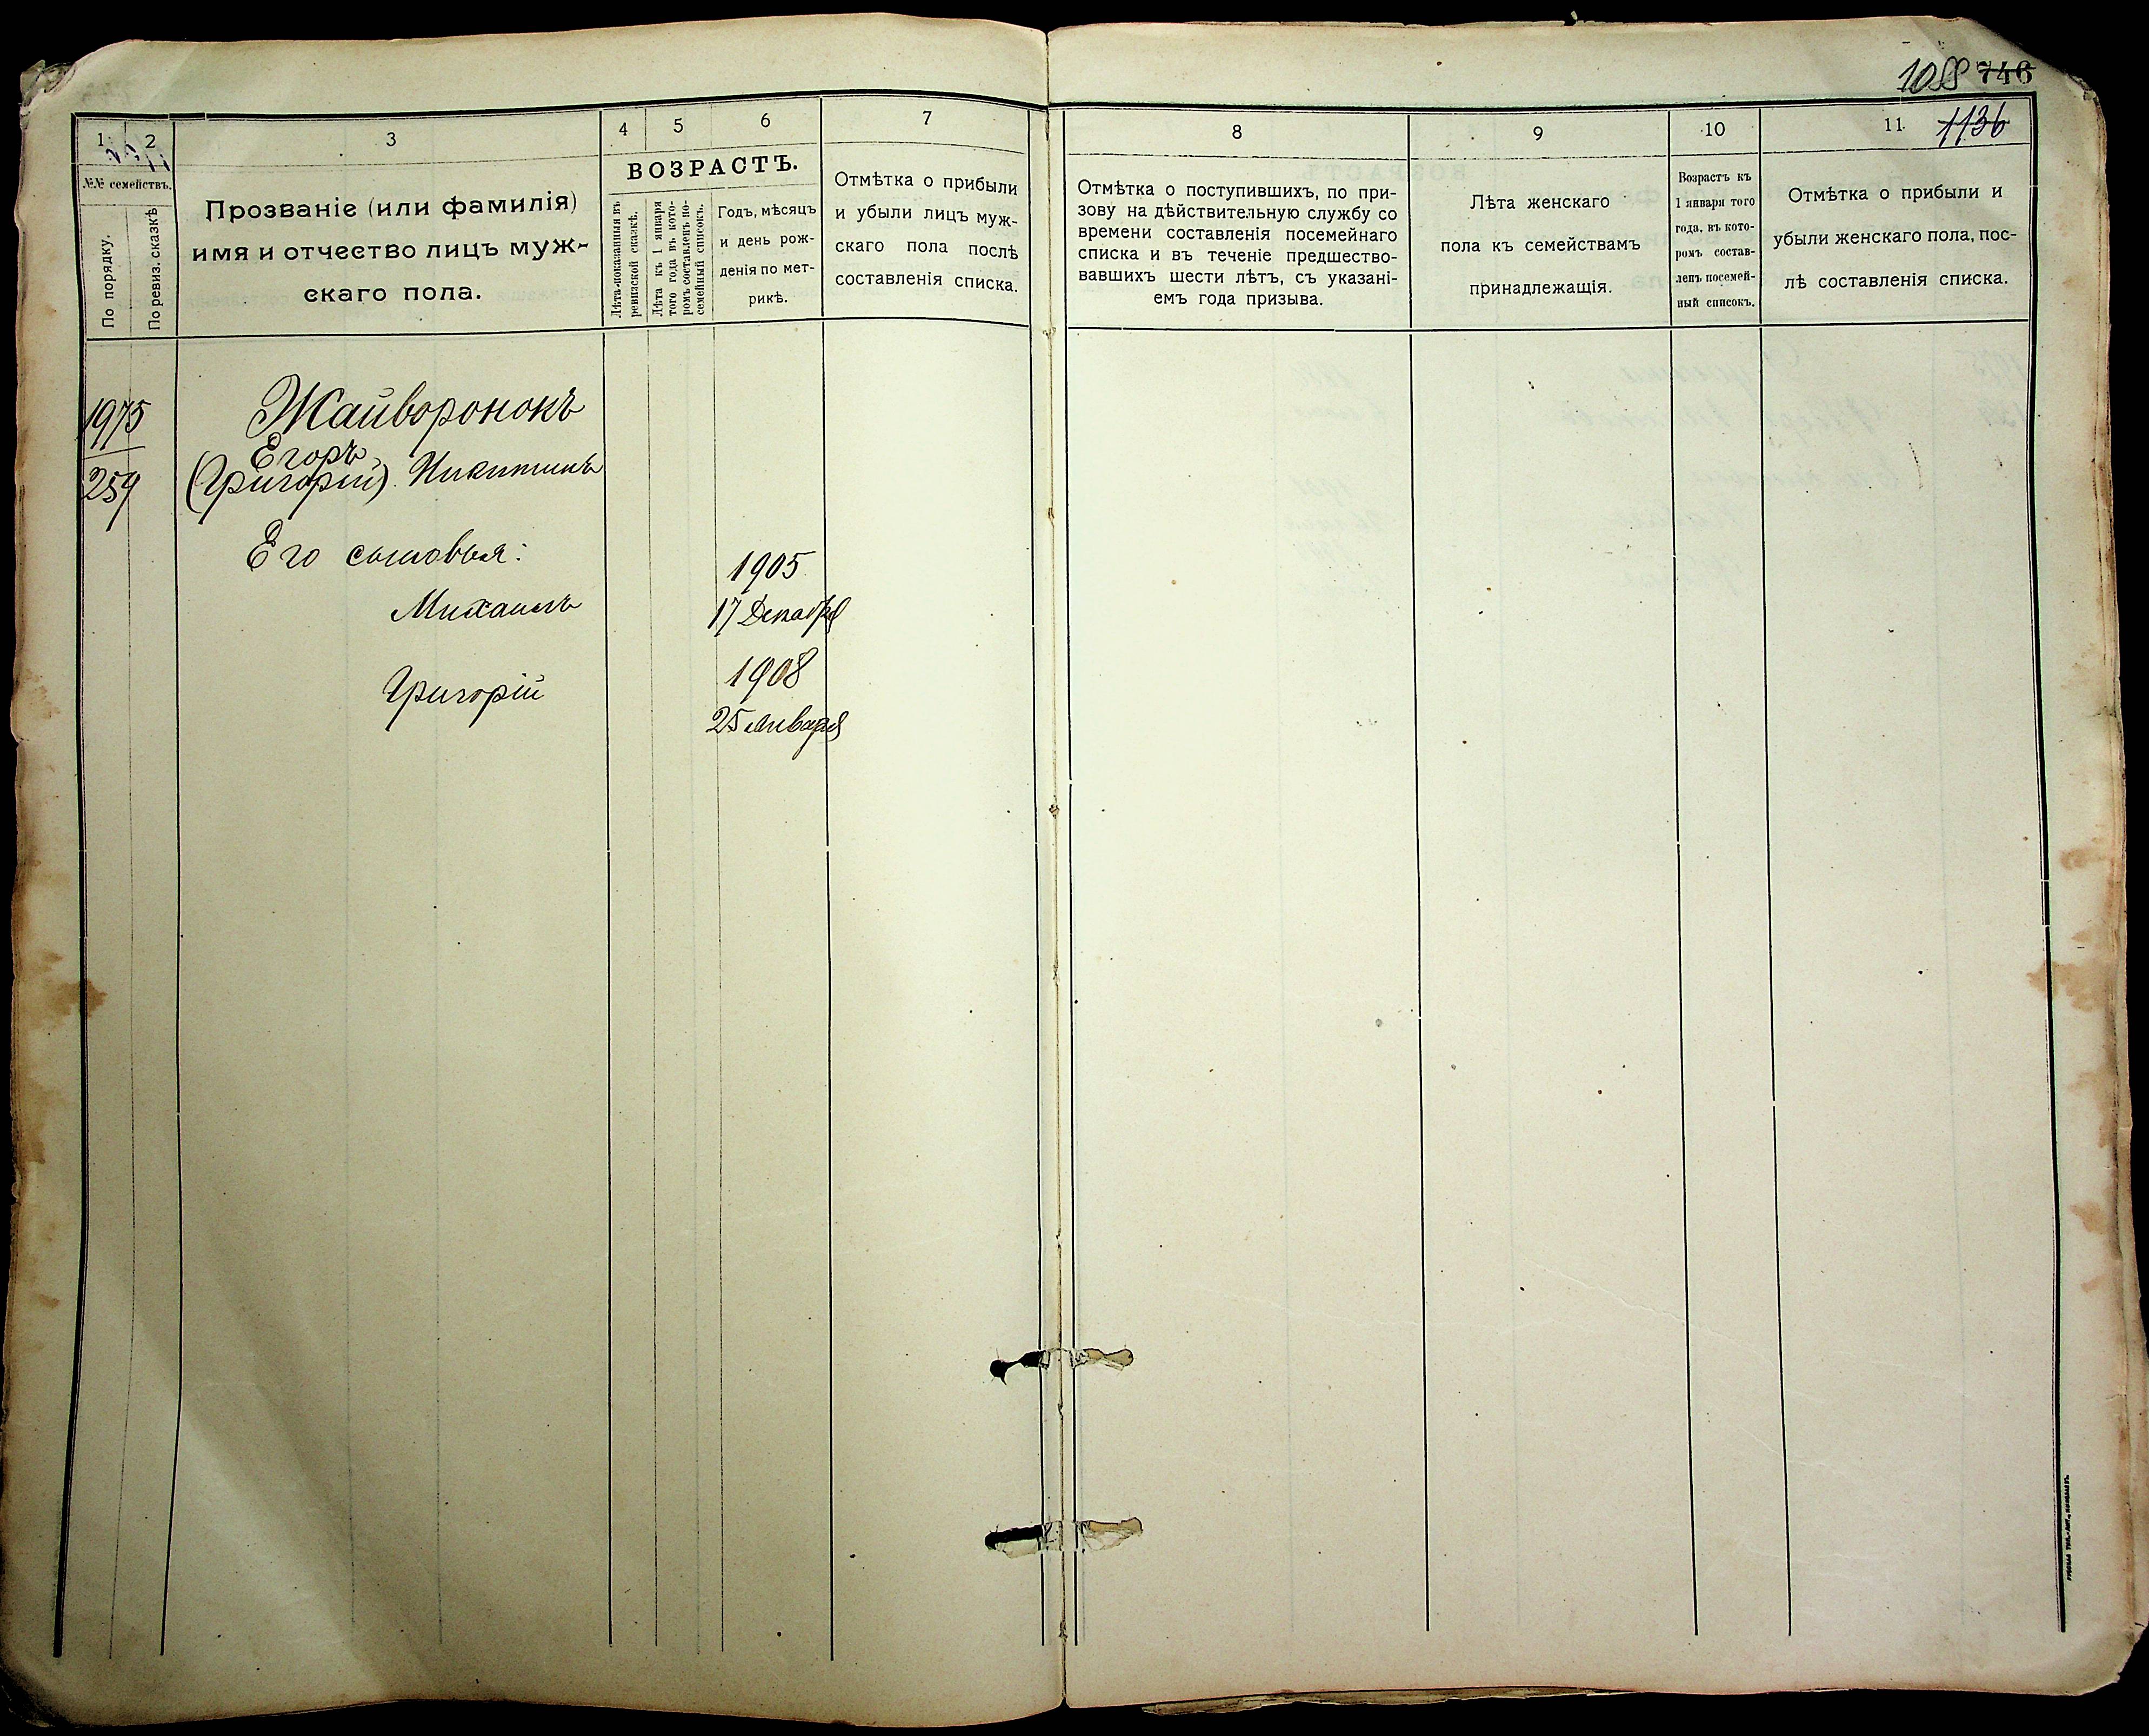 1088 746
1136
1 2 3 4 5 6 7
№№ семействъ.
По порядку.
По ревиз. сказкѣ
Прозваніе (или фамилія)
имя и отчество лицъ муж-
скаго пола.
ВОЗРАСТЪ.
Лѣта показанныя въ
ревизской сказкѣ.
Лѣта къ 1 января
того года въ кото-
ромъ составленъ по-
семейный списокъ.
Годъ, мѣсяцъ
и день рож-
денія по мет-
рикѣ.
Отмѣтка о прибыли
и убыли лицъ муж-
скаго пола послѣ
составленія списка.
1975
259
Жайворонокъ
Егоръ
(Григорій) Никитинъ
Его сыновья:
Михаилъ
1905
17 Декабря
Григорій
1908
25 Января
8 9 10 11
Отмѣтка о поступившихъ, по при-
зову на дѣйствительную службу со
времени составленія посемейнаго
списка и въ теченіе предшество-
вавшихъ шести лѣтъ, съ указані-
емъ года призыва.
Лѣта женскаго
пола къ семействамъ
принадлежащія.
Возрастъ къ
1 января того
года, въ кото-
ромъ состав-
ленъ посемей-
ный списокъ.
Отмѣтка о прибыли и
убыли женскаго пола, пос-
лѣ составленія списка.